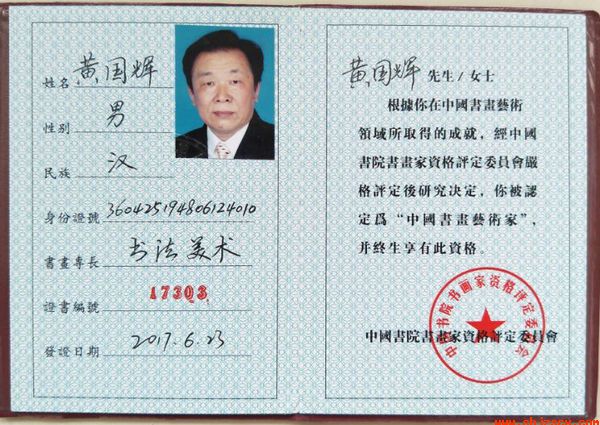 姓名 黄国辉
性别 男
民族 汉
身份證號 360425194806124010
書畫專長 书法美术
證書編號 17303
發證日期 2017.6.23
黄国辉 先生/女士
根據你在中國書畫藝術
領域所取得的成就，經中國
書院書畫家資格評定委員會嚴
格評定後研究决定，你被認
定爲“中國書畫藝術家”，
并終生享有此資格。
中国书院书画家资格评定委员会
中國書院書畫家資格評定委員會